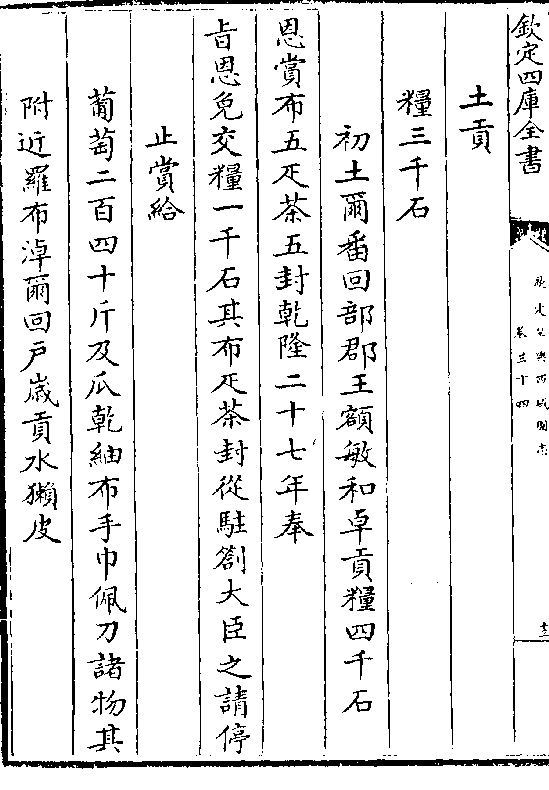 欽定四庫全書
欽定皇輿西域圖志
卷三十四
土貢
糧三千石
初土爾番回部郡王額敏和卓貢糧四千石
恩賞布五疋茶五封乾隆二十七年奉
㫖恩免交糧一千石其布疋茶封從駐劄大臣之請停
止賞給
葡萄二百四十斤及瓜乾紬布手巾佩刀諸物其
附近羅布淖爾回戸嵗貢水獺皮